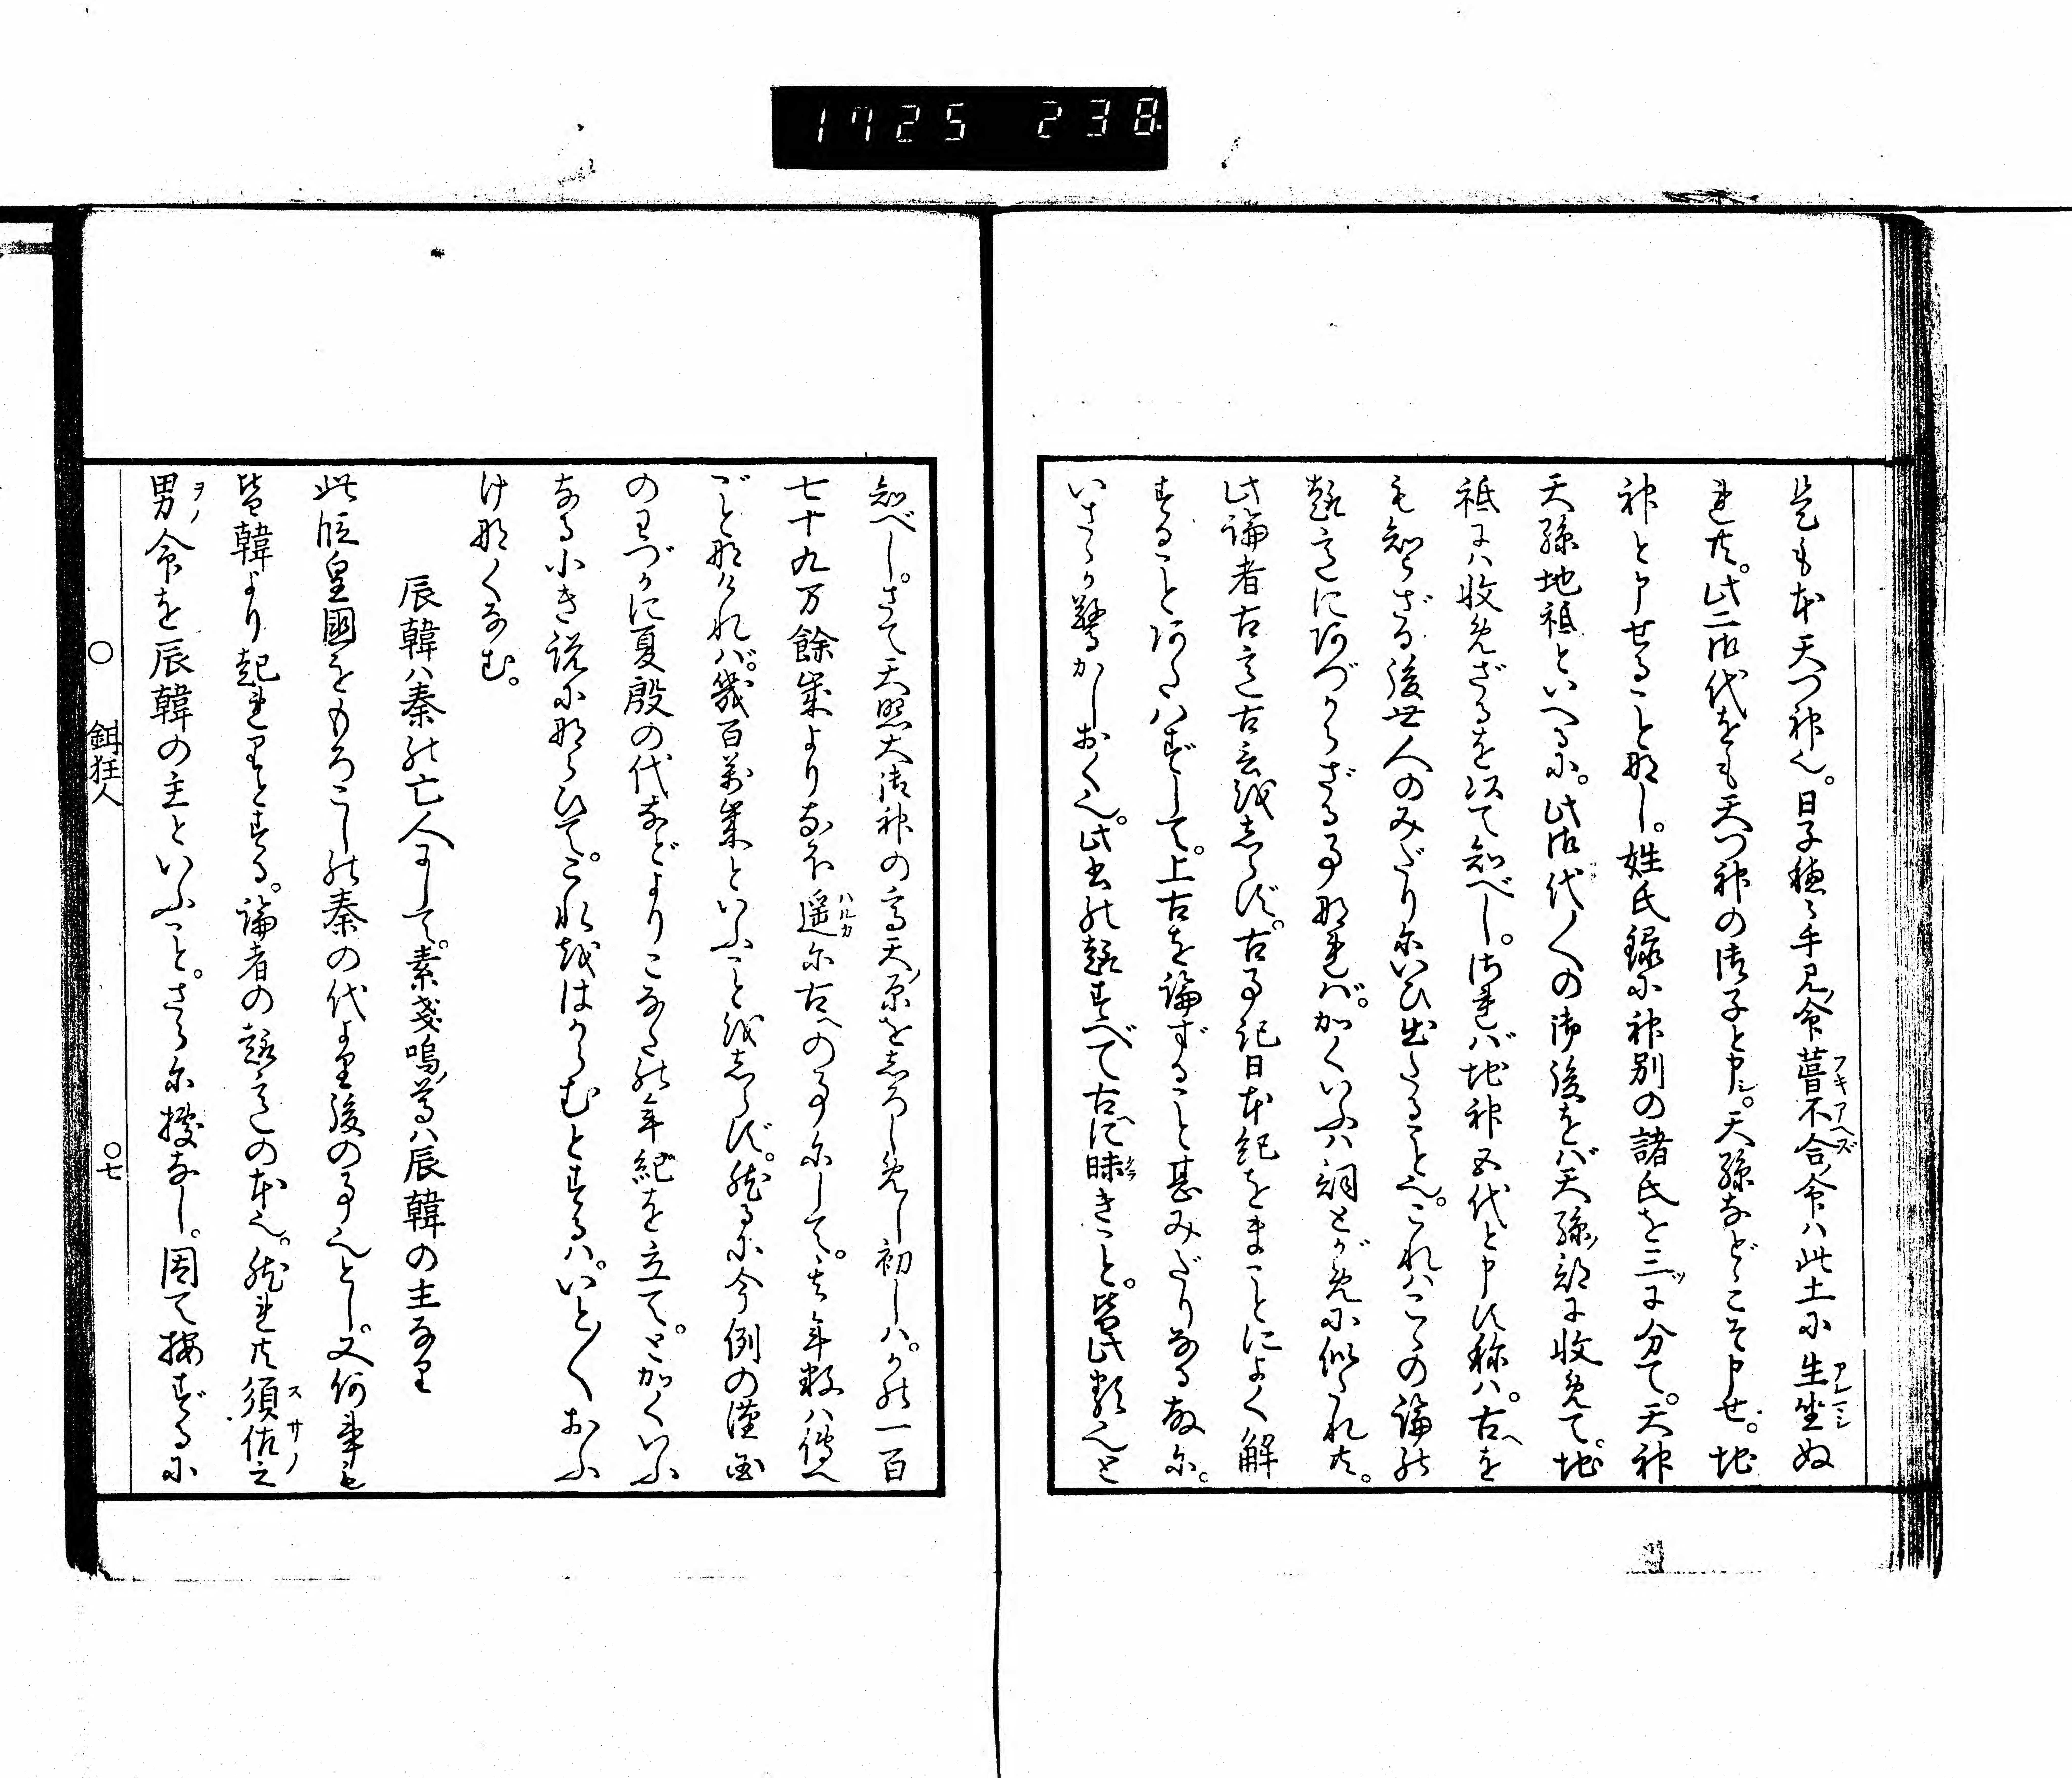 1725 238
是もが天つ神也。日子穂々手見ノ命葺不合ノ命ハ此土に生坐ぬ
れ共。此二御代をも天つ神の御子と申シ。天孫などこそ申せ。地
神と申せること那し。姓氏録に神別の諸氏を三ツに分て。天神
天孫地祇といへるに。此御代〱の御後をバ天孫ノ部に收めて。地
祇にハ收めざるを以て知べし。されバ地神五代と申す称ハ。古ヘを
も知らざる後世人のみだりにいひ出たること也。これハこゝの論の
趣意にあづからざる事那れバ。かくいふハ詞とがめに似たれ共。
此論者古意古言をしらず。古事記日本紀をまことによく解
することあたハずして。上古を論ずること甚みだりなる故に。
いさゝか驚かしおく也。此書の趣すべて古ヘに昧きこと。皆此類也と
知べし。さて天照大御神の高天ノ原をしろしめし初しハ。かの一百
七十九万餘歳よりなほ遥に古ヘの事にして。其年数ハ傳へ
ごと那けれバ。幾百萬歳といふことをしらず。然るに今例の漢国
のわづかに夏殷の代などよりこなたの年紀を立て。とかくいふ
なる小き説に那らひて。これをはからむとするハ。いと〱おふ
け那くなむ。
辰韓ハ秦の亡人にして。素戔嗚ノ尊ハ辰韓の主なり
此段皇國をもろこしの秦の代より後の事也とし。又何事も
皆韓より起れりとする。論者の趣意の本也。然れ共須佐之
男ノ命を辰韓の主といふこと。さらに據なし。因て按ずるに
○ 鉗狂人 ○七